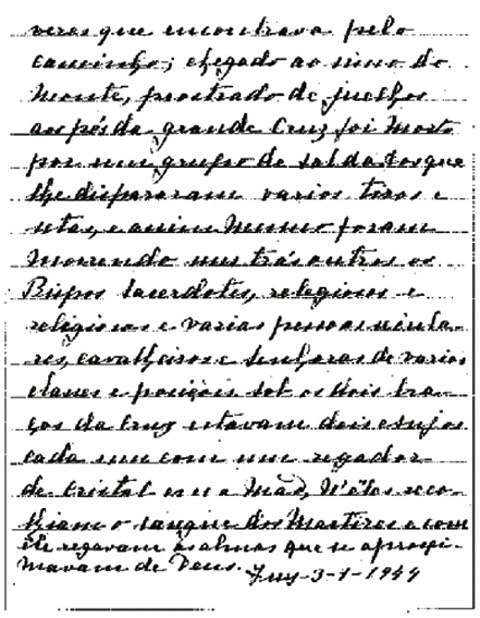 veres que encontrava pelo
caminho; chegado ao cimo do
Monte, prostrado de juelhos
aos pés da grande Cruz foi morto
por um grupo de soldados que
lhe dispararam varios tiros e
setas, e assim mesmo foram
morrendo uns trás outros os
Bispos Sacerdotes, religiosos e
religiosas e varias pessoas secula-
res, cavalheiros e senhoras de varias
classes e posições. Sob os dois bra-
ços da Cruz estavam dois Anjos
cada um com um regador
de cristal em a mão, N'êles reco-
lhiam o sangue dos Martires e com
êle regavam as almas que se aproxi-
mavam de Deus. Tuy-3-1-1944